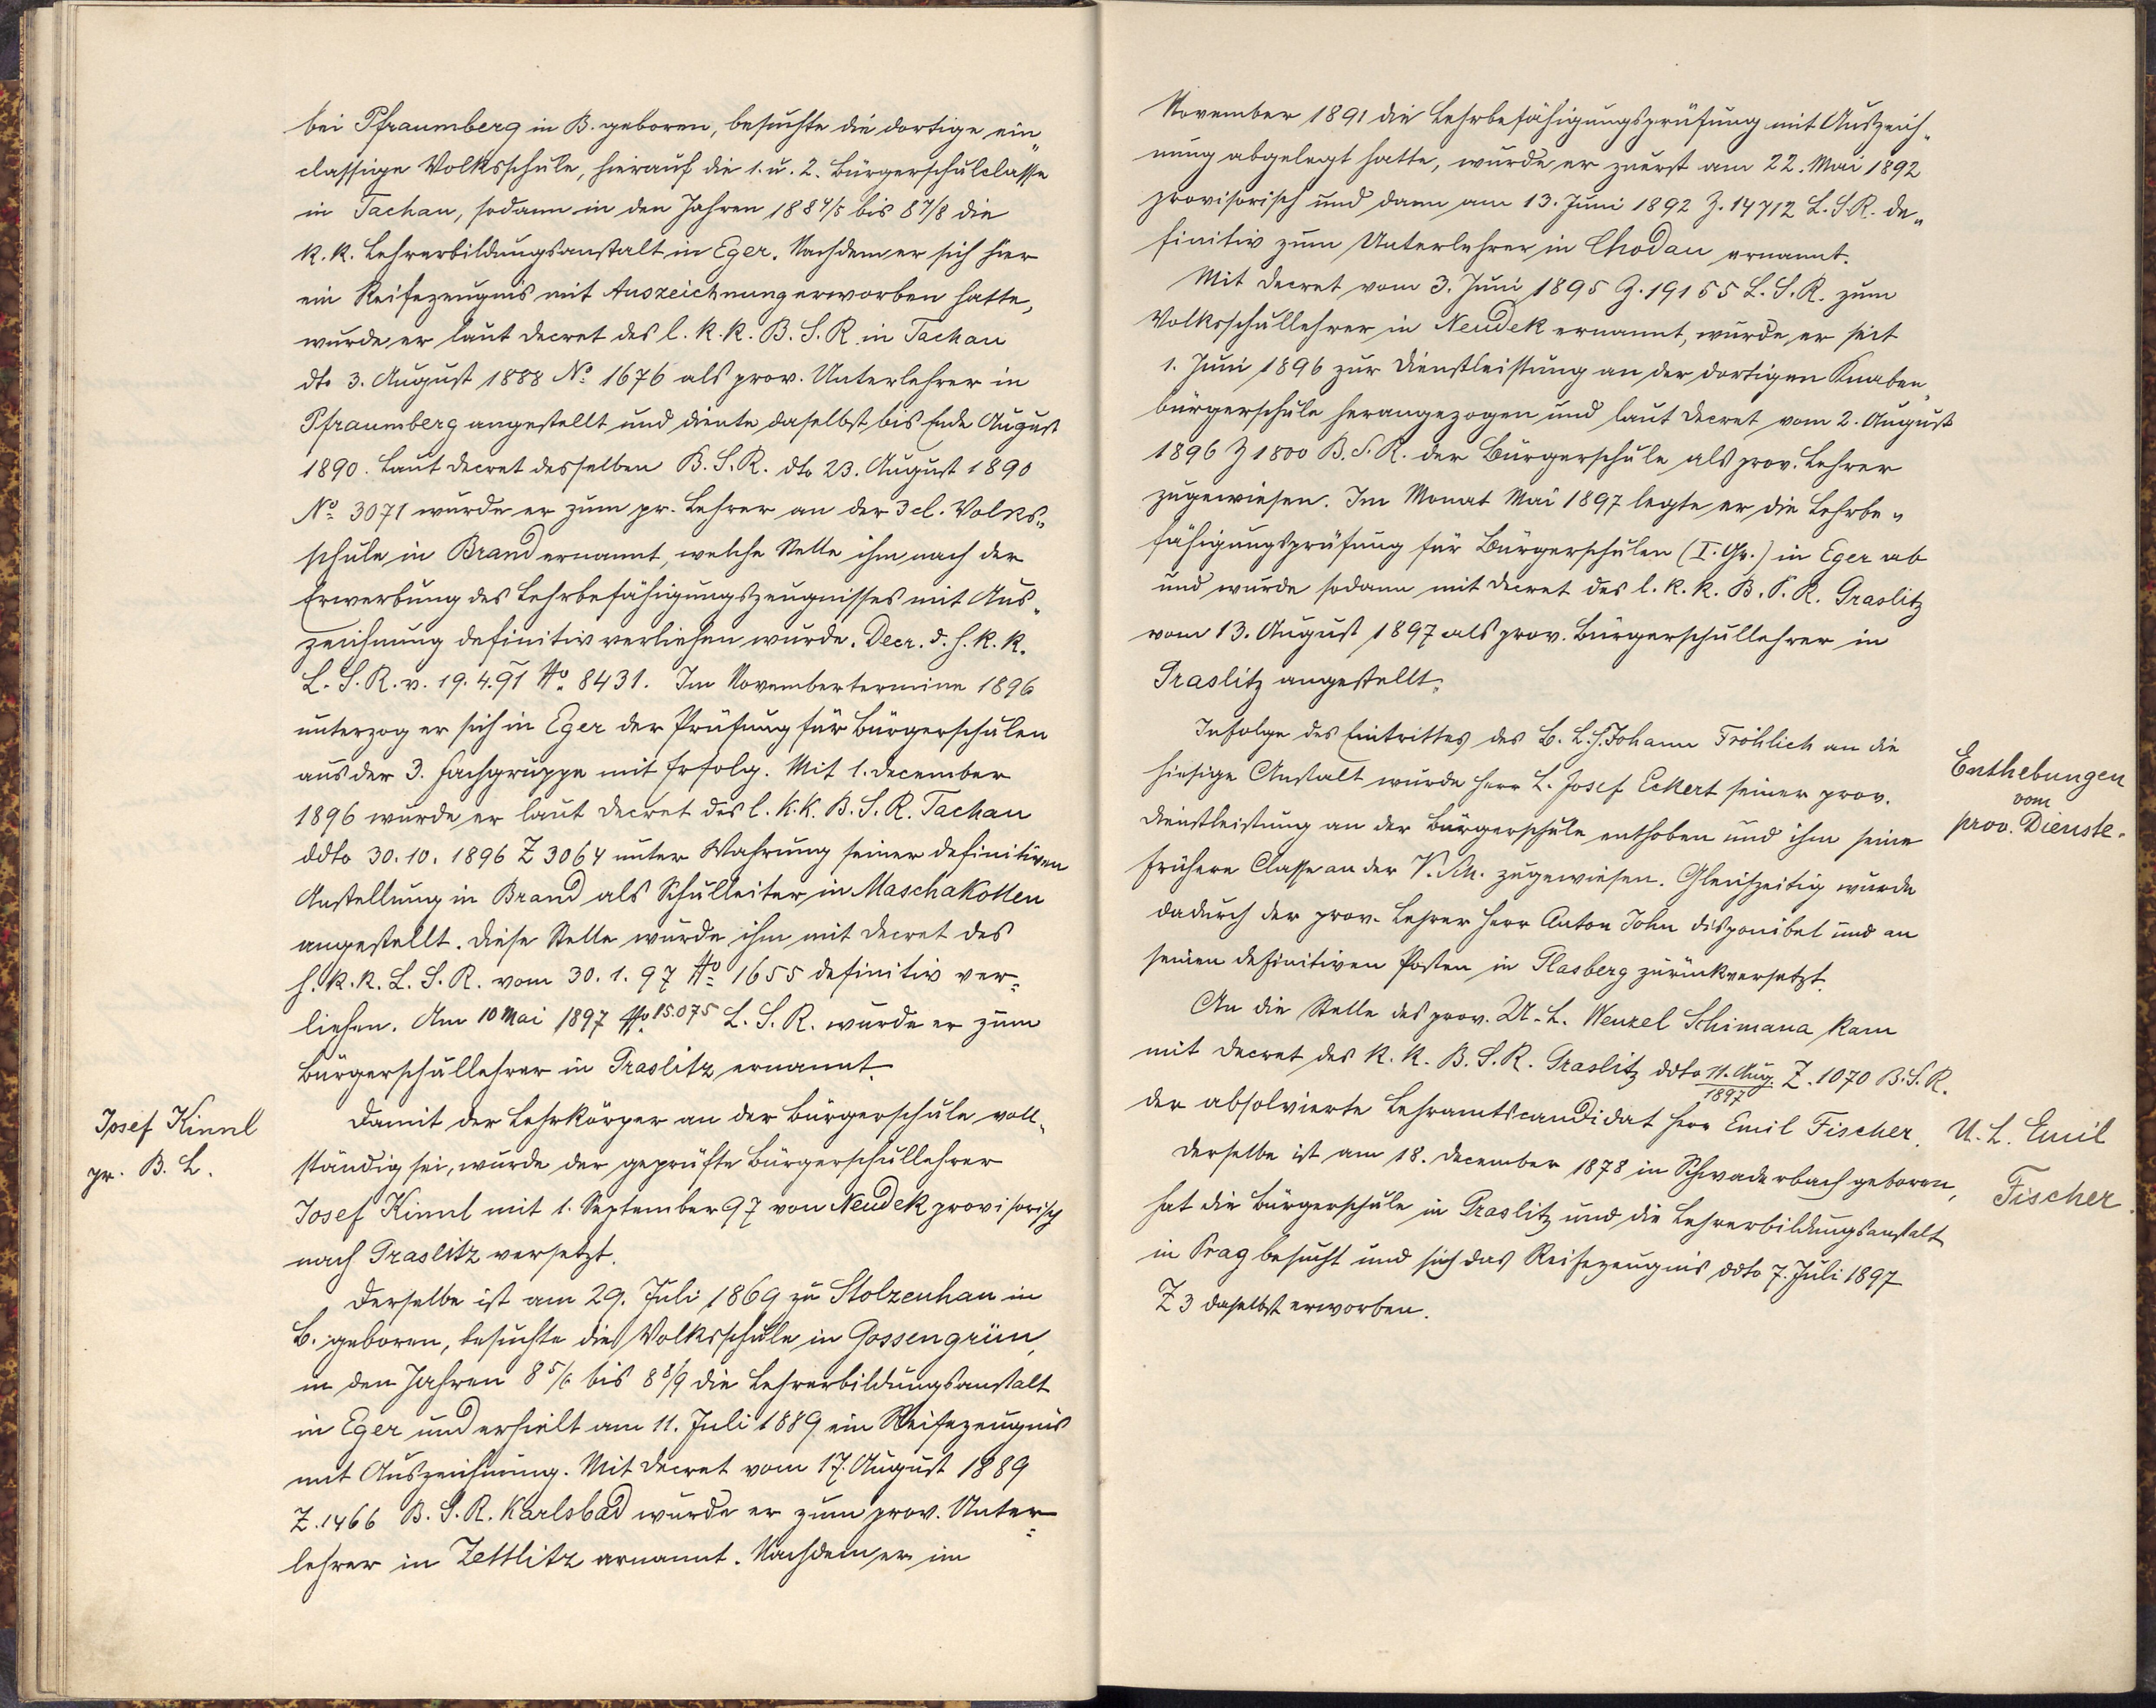 bei Pfraumberg in B. geboren, besuchte die dortige ein„
classige Volksschule, hierauf die 1. u. 2. Bürgerschulclasse
in Tachau, sodann in den Jahren 188 4/5 bis 8 7/8 die
k. k. Lehrerbildungsanstalt in Eger. Nachdem er sich hier
ein Reifezeugnis mit Auszeichnung erworben hatte,
wurde er laut Decret des l. k. k. B. S. R. in Tachau
dto 3. August 1888 No 1676 als prov. Unterlehrer in
Pfraumberg angestellt und diente daselbst bis Ende August
1890. Laut Decret desselben B. S. R. dto 23. August 1890
No 3071 wurde er zum pr. Lehrer an der 3 cl. Volks„
schule in Brand ernannt, welche Stelle ihm nach der
Erwerbung des Lehrbefähigungszeugnisses mit Aus„
zeichnung definitiv verliehen wurde. Decr. d. h. k. k.
L. S. R. v. 19. 4. 91 No 8431. Im Novembertermine 1896
unterzog er sich in Eger der Prüfung für Bürgerschulen
aus der 3. Fachgruppe mit Erfolg. Mit 1. December
1896 wurde er laut Decret des l. k. k. B. S. R. Tachau
ddto 30. 10. 1896 Z 3064 unter Wahrung seiner definitiven
Anstellung in Brand als Schulleiter in Maschakotten
angestellt. Diese Stelle wurde ihm mit Decret des
h. k. k. L. S. R. vom 30. 1. 97 No 1655 definitiv ver„
liehen. Am 10 Mai 1897 No 15.075 L. S. R. wurde er zum
Bürgerschullehrer in Graslitz ernannt.
Josef Kinnl
pr. B. L.
Damit der Lehrkörper an der Bürgerschule voll„
ständig sei, wurde der geprüfte Bürgerschullehrer
Josef Kinnl mit 1. September 97 von Neudek provisorisch
nach Graslitz versetzt.
Derselbe ist am 29. Juli 1869 zu Stolzenhan in
B. geboren, besuchte die Volksschule in Gossengrün,
in den Jahren 8 5/6 bis 8 8/9 die Lehrerbildungsanstalt
in Eger und erhielt am 11. Juli 1889 ein Reifezeugnis
mit Auszeichnung. Mit Decret vom 17. August 1889
Z. 1466 B. S. R. Karlsbad wurde er zum prov. Unter„
lehrer in Zettlitz ernannt. Nachdem er im
November 1891 die Lehrbefähigungsprüfung mit Auszeich„
nung abgelegt hatte, wurde er zuerst am 22. Mai 1892
provisorisch und dann am 13. Juni 1892 Z. 14712 L. S. R. de„
finitiv zum Unterlehrer in Chodau ernannt.
Mit Decret vom 3. Juni 1895 Z. 19155 L. S. R. zum
Volksschullehrer in Neudek ernannt, wurde er seit
1. Juni 1896 zur Dienstleistung an der dortigen Knaben„
bürgerschule herangezogen und laut Decret vom 2. August
1896 Z 1800 B. S. R. der Bürgerschule als prov. Lehrer
zugewiesen. Im Monat Mai 1897 legte er die Lehrbe„
fähigungsprüfung für Bürgerschulen (I. Gr.) in Eger ab
und wurde sodann mit Decret des l. k. k. B. S. R. Graslitz
vom 13. August 1897 als prov. Bürgerschullehrer in
Graslitz angestellt.
Infolge des Eintrittes des B. L. H. Johann Fröhlich an die
hiesige Anstalt wurde Herr L. Josef Eckert seiner prov.
Dienstleistung an der Bürgerschule enthoben und ihm seine
frühere Classe an der V. Sch. zugewiesen. Gleichzeitig wurde
dadurch der prov. Lehrer Herr Anton John disponibel und an
seinen definitiven Posten in Glasberg zurückversetzt.
Enthebungen
vom
prov. Dienste.
An die Stelle des prov. U. L. Wenzel Schimana kam
mit Decret des k. k. B. S. R. Graslitz ddto 11. Aug. 1897 Z. 1070 B. S. R.
der absolvierte Lehramtscandidat Herr Emil Fischer.
Derselbe ist am 18. December 1878 in Schwaderbach geboren,
hat die Bürgerschule in Graslitz und die Lehrerbildungsanstalt
in Prag besucht und sich das Reifezeugnis ddto 7. Juli 1897
Z 3 daselbst erworben.
U. L. Emil
Fischer.